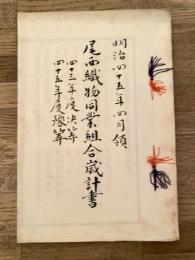 明治四十五年四月領
尾西織物同業組合歳計書
四十三年度決算
四十五年度豫算